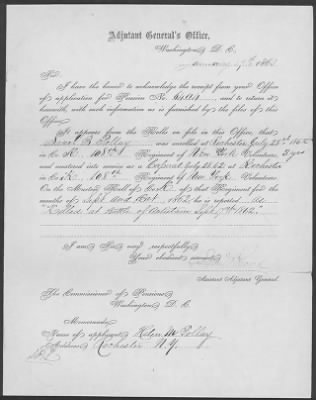 Adjutant General's Office,
Washington, D. C.
January 17th 1863
Sir:
I have the honor to acknowledge the receipt from your Office
of application for Pension No. and to return it
herewith, with such information as is furnished by the files of this
Office.
It appears from the Rolls on file in this Office, that
B. Pollay was enrolled at Rochester July 28th 1862
in Co. K, 108th Regiment of New York Volunteers, 3 yrs
and mustered into service as a Corporal July 28 62 at Rochester
in Co. K, 108th Regiment of New York Volunteers.
On the Muster Roll of Co. K of that Regiment, for the
months of Sept and Oct 1862, he is reported as
"Killed at battle of Antietam Sept 17th 1862."
I am Sir, very respectfully,
Your obedient servant,
Assistant Adjutant General.
To the Commissioner of Pensions,
Washington, D. C.
Memoranda.
Name of applicant, Helen M. Pollay
Address, Rochester N.Y.